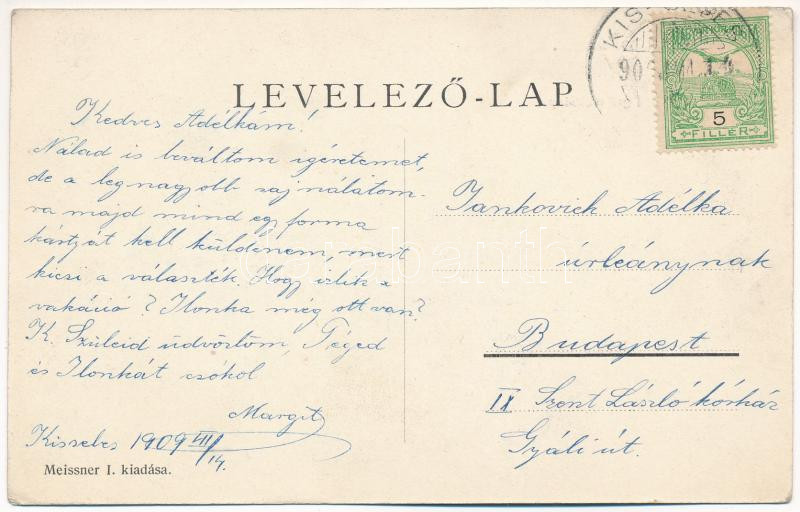 LEVELEZŐ-LAP
Kedves Adélkám!
Nálad is beváltom igéretemet,
de a legnagyobb sajnálatom-
ra majd mind egy forma
kártyát kell küldenem, mert
kicsi a választék. Hogy izlik a
vakáció? Ilonka még ott van?
K. Szüleid üdvözlöm, Téged
és Ilonkát csókol
Margit
Kissebes 1909 VII/14.
Meissner I. kiadása.
5
FILLÉR
Jankovich Adélka
úrleánynak
Budapest
IX Szent László kórház
Gyáli út.